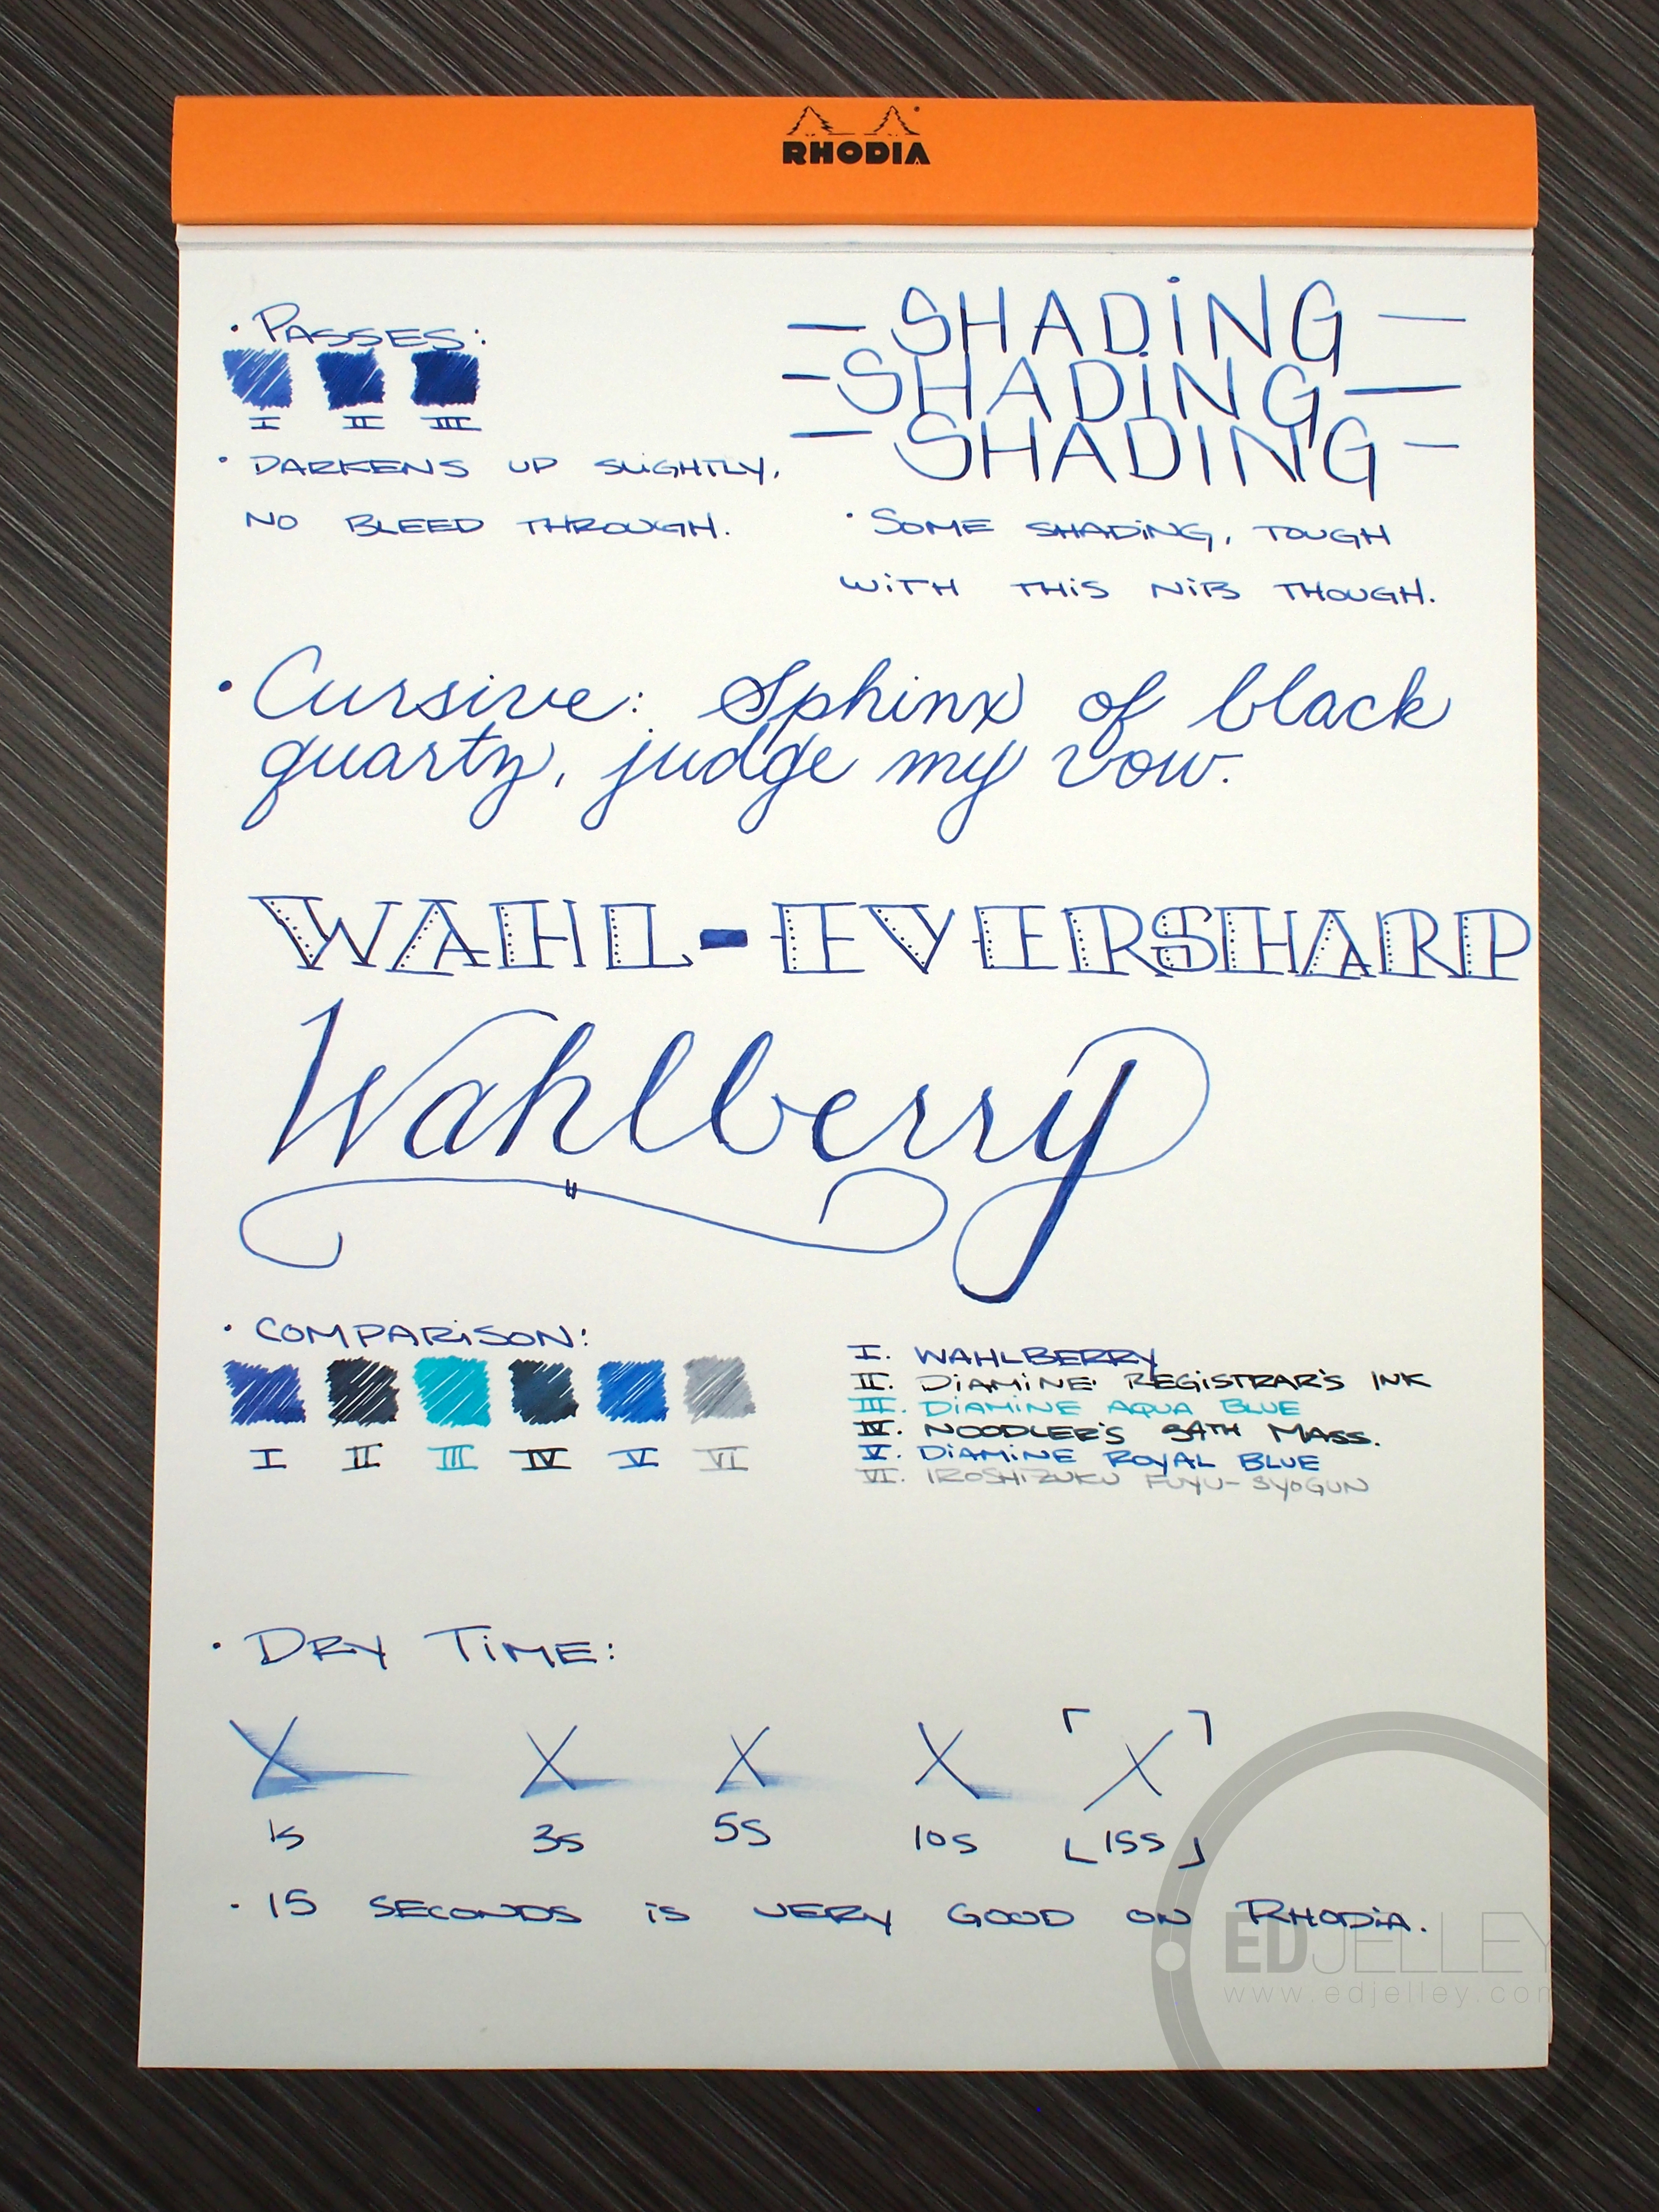 RHODIA
• PASSES:
I II III
• DARKENS UP SLiGHTLY,
NO BLEED THROUGH.
— SHADiNG —
— SHADiNG —
— SHADING —
• SOME SHADiNG, TOUGH
WiTH THiS NiB THOUGH.
• Cursive: Sphinx of black
quartz, judge my vow.
WAHL-EVERSHARP
Wahlberry
• COMPARiSON:
I II III IV V VI
I. WAHLBERRY
II. DiAMiNE REGISTRAR'S INK
III. DiAMINE AQUA BLUE
IV. NOODLER'S 54TH MASS.
V. DiAMINE ROYAL BLUE
VI. IROSHIZUKU FUYU-SYOGUN
• DRY TiME:
X X X X X
1s 3s 5s 10s 15s
• 15 SECONDS iS VERY GOOD ON RHODiA.
EDJELLEY
www.edjelley.com